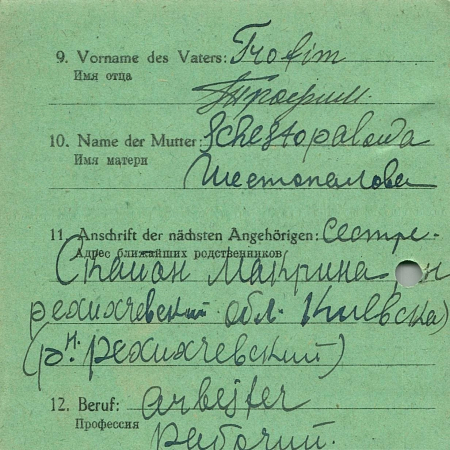 9. Vorname des Vaters: Trofim
Имя отца
Трофим
10. Name der Mutter: Schestopalowa
Имя матери
Шестопалова
11. Anschrift der nächsten Angehörigen: сестре-
Адрес ближайших родственников
Макрина
обл. Киевска)
12. Beruf: arbejter
Профессия
Рабочий.